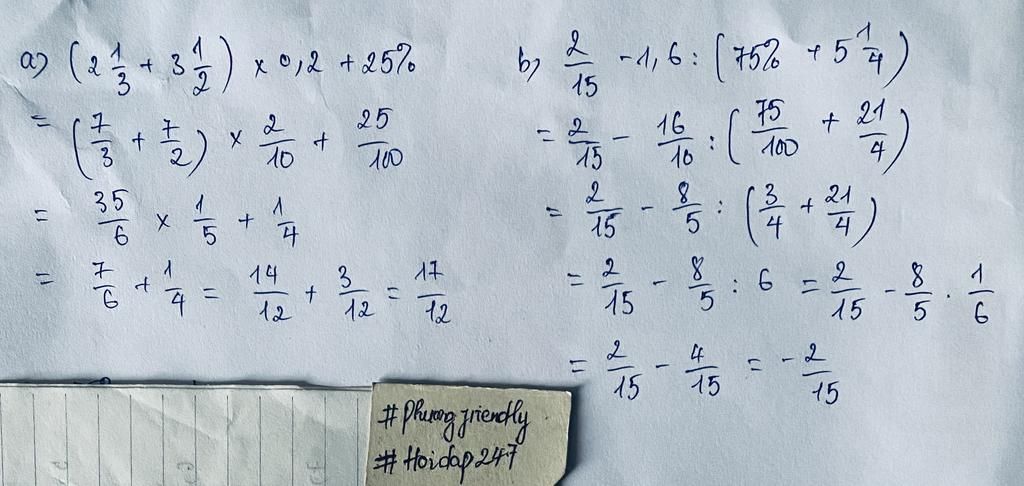 a) (2 1/3 + 3 1/2) x 0,2 + 25%
= (7/3 + 7/2) x 2/10 + 25/100
= 35/6 x 1/5 + 1/4
= 7/6 + 1/4 = 14/12 + 3/12 = 17/12
b) 2/15 - 1,6 : (75% + 5 1/4)
= 2/15 - 16/10 : (75/100 + 21/4)
= 2/15 - 8/5 : (3/4 + 21/4)
= 2/15 - 8/5 : 6 = 2/15 - 8/5 . 1/6
= 2/15 - 4/15 = - 2/15
# Phuong friendly
# Hoidap247